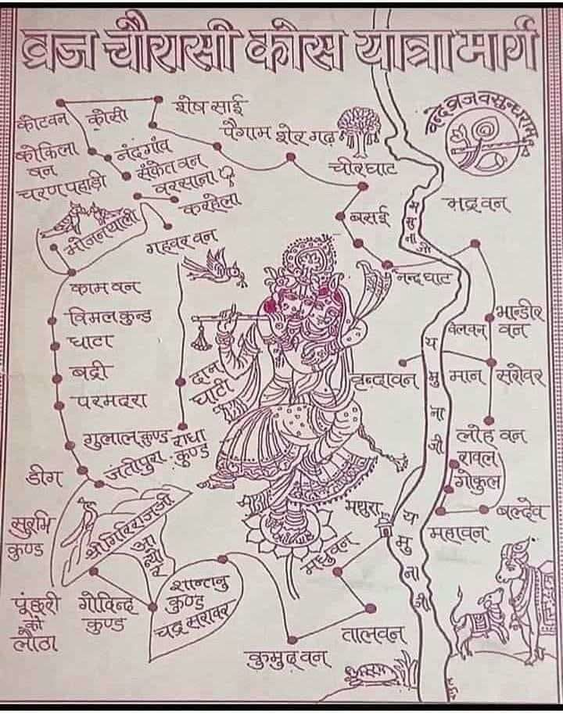 व्रज चौरासी कोस यात्रा मार्ग
वन्दे व्रज वसुन्धराम्
शेष साई
कोटवन
कोसी
पैगाम
शेरगढ़
नंदगाँव
कोकिला
वन
संकेत वन
चीरघाट
चरण पहाड़ी
बरसाना
करहेला
भद्रवन
बसई
भोजनथाली
गहवर वन
यमुना जी
नन्दघाट
कामवन
विमलकुन्ड
भान्डीर
वन
बेलवन
घाटा
बद्री
दान
घाटी
वृन्दावन
मान
सरोवर
परमदरा
यमुना जी
गुलाल कुण्ड
राधा
कुण्ड
लोहवन
जतीपुरा
रावल
डीग
गोकुल
मथुरा
बल्देव
सुरभि
कुण्ड
श्री गिरिराज जी
आन्यौर
महावन
यमुना जी
मधुवन
शान्तनु
कुण्ड
चन्द्र सरोवर
पूंछरी
को
लौठा
गोविन्द
कुण्ड
तालवन
कुमुदवन